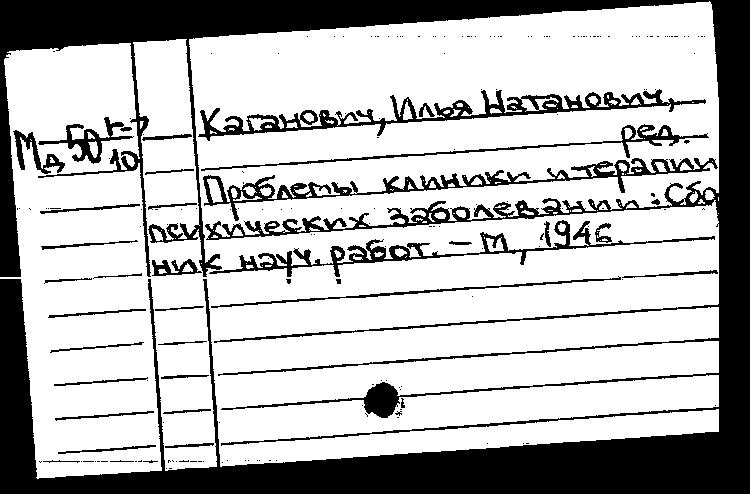 Каганович, Илья Натанович,
ред.
Мд 50 г-7/10
Проблемы клиники и терапии
психических заболеваний: Сбо
ник науч. работ. – М., 1946.